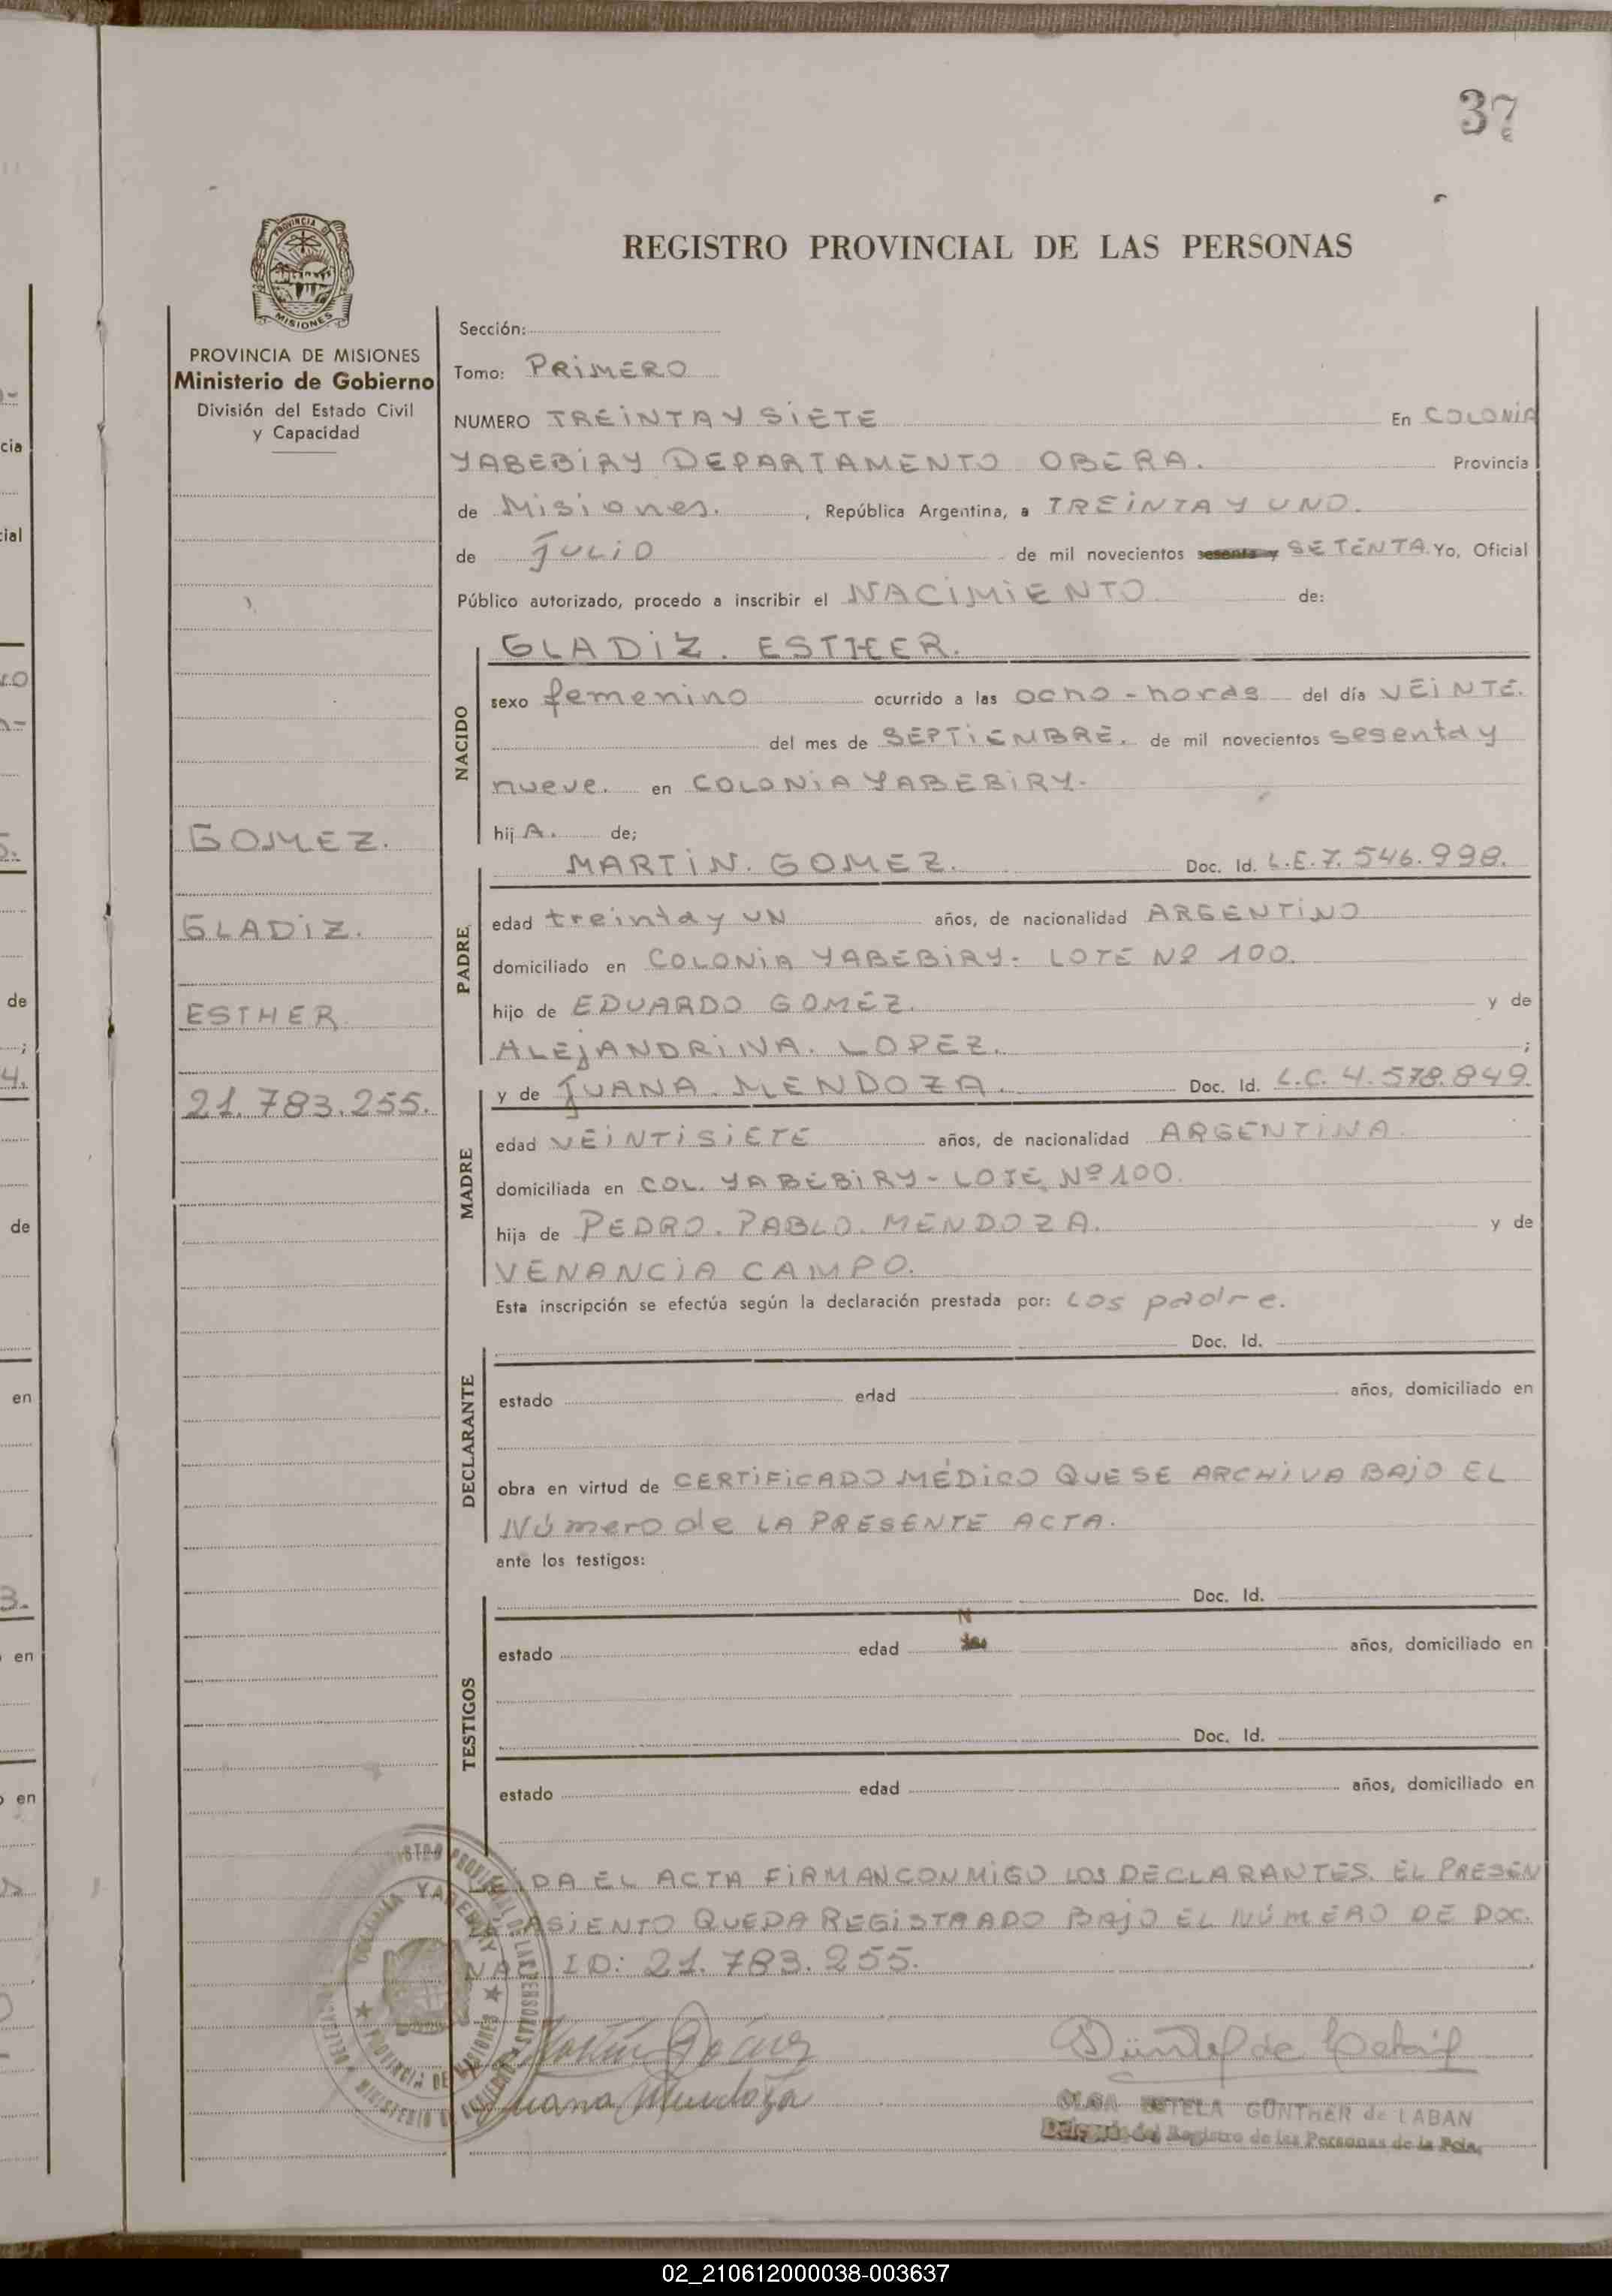 37
REGISTRO PROVINCIAL DE LAS PERSONAS
PROVINCIA DE
MISIONES
PROVINCIA DE MISIONES
Ministerio de Gobierno
División del Estado Civil
y Capacidad
GOMEZ.
GLADIZ.
ESTHER
21.783.255.
Sección:
Tomo: PRIMERO
NUMERO TREINTA Y SIETE En COLONIA
YABEBIRY DEPARTAMENTO OBERA. Provincia
de Misiones. , República Argentina, a TREINTA Y UNO.
de JULIO de mil novecientos sesenta y SETENTA. Yo, Oficial
Público autorizado, procedo a inscribir el NACIMIENTO de:
NACIDO
GLADIZ. ESTHER.
sexo femenino ocurrido a las ocho - horas del día VEINTE.
del mes de SEPTIEMBRE. de mil novecientos sesenta y
nueve. en COLONIA YABEBIRY.
hij A. de;
PADRE
MARTIN. GOMEZ. Doc. Id. L.E. 7.546.998.
edad treinta y UN años, de nacionalidad ARGENTINO
domiciliado en COLONIA YABEBIRY- LOTE Nº 100.
hijo de EDUARDO GOMEZ. y de
ALEJANDRINA. LOPEZ. ;
MADRE
y de JUANA. MENDOZA. Doc. Id. L.C. 4.578.849.
edad VEINTISIETE años, de nacionalidad ARGENTINA.
domiciliada en COL. YABEBIRY- LOTE Nº 100.
hija de PEDRO. PABLO. MENDOZA. y de
VENANCIA CAMPO.
Esta inscripción se efectúa según la declaración prestada por: LOS padre.
DECLARANTE
Doc. Id.
estado edad años, domiciliado en
obra en virtud de CERTIFICADO MÉDICO QUE SE ARCHIVA BAJO EL
Número de LA PRESENTE ACTA.
ante los testigos:
TESTIGOS
Doc. Id.
estado edad años, domiciliado en
Doc. Id.
estado edad años, domiciliado en
LEIDA EL ACTA FIRMAN CONMIGO LOS DECLARANTES. EL PRESEN
TE ASIENTO QUEDA REGISTRADO BAJO EL NÚMERO DE DOC.
NAC ID: 21.783.255.
Martin Gómez
Juana Mendoza
OLGA ESTELA GÜNTHER de LABAN
Delegada del Registro de las Personas de la Pcia.
COLONIA YABEBIRY
PROVINCIA DE MISIONES
02_210612000038-003637